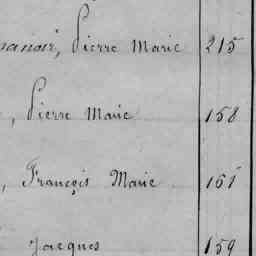 Pierre Marie 215
, Pierre Marie 158
, François Marie 161
Jacques 159